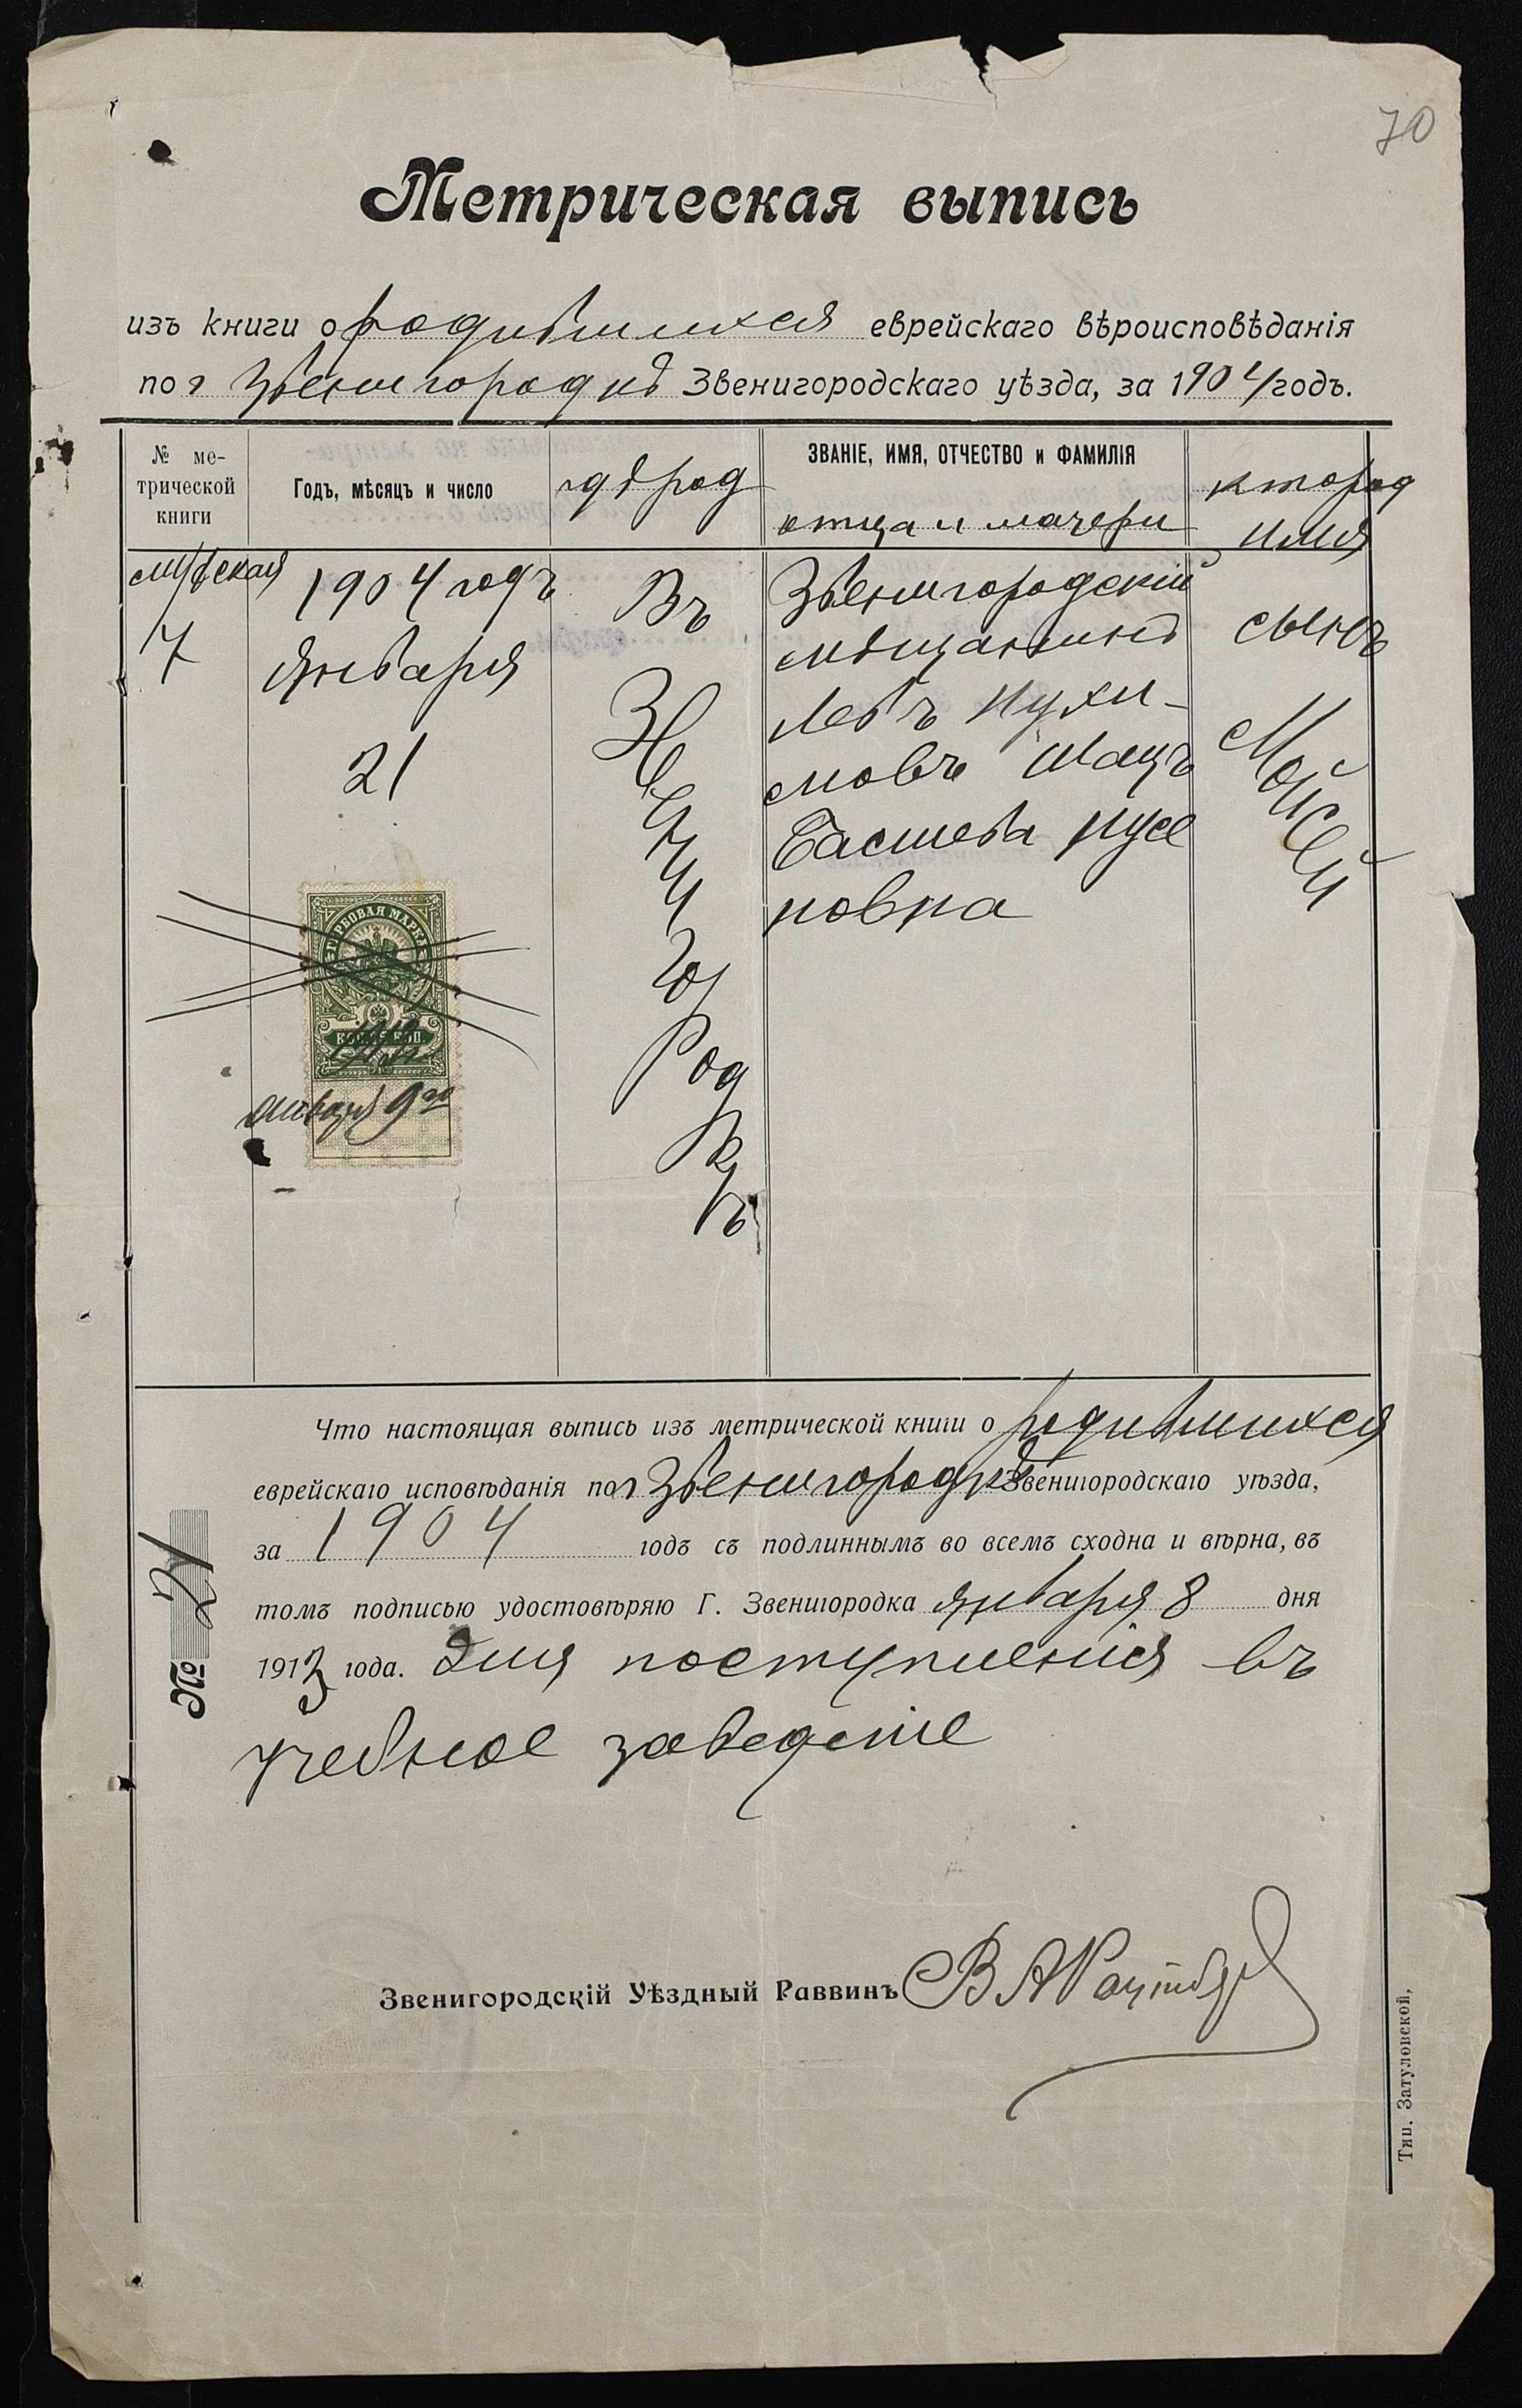 70
Метрическая выпись
изъ книги о родившихся еврейскаго вѣроисповѣданія
по г Звенигородкѣ Звенигородскаго уѣзда, за 1904 годъ.
№ ме-
трической
книги
Годъ, мѣсяцъ и число
гдѣ род
ЗВАНІЕ, ИМЯ, ОТЧЕСТВО и ФАМИЛІЯ
отца и матери
кто род
имя
мужская
7
1904 годъ
Января
21
Въ
Звенигородкѣ
Звенигородскій
мѣщанинъ
Левъ Нухи-
мовъ Шацъ
Басшева Нусе
новна
сынъ
Мойсей
ГЕРБОВАЯ МАРКА
января 9го
Что настоящая выпись изъ метрической книги о родившихся
еврейскаго исповѣданія по г Звенигородкѣ Звенигородскаго уѣзда,
за 1904 годъ съ подлиннымъ во всемъ сходна и вѣрна, въ
томъ подписью удостовѣряю Г. Звенигородка января 8 дня
1913 года. Для поступленія въ
учебное заведеніе
№ 21
Звенигородскій Уѣздный Раввинъ
Тип. Затуловской,